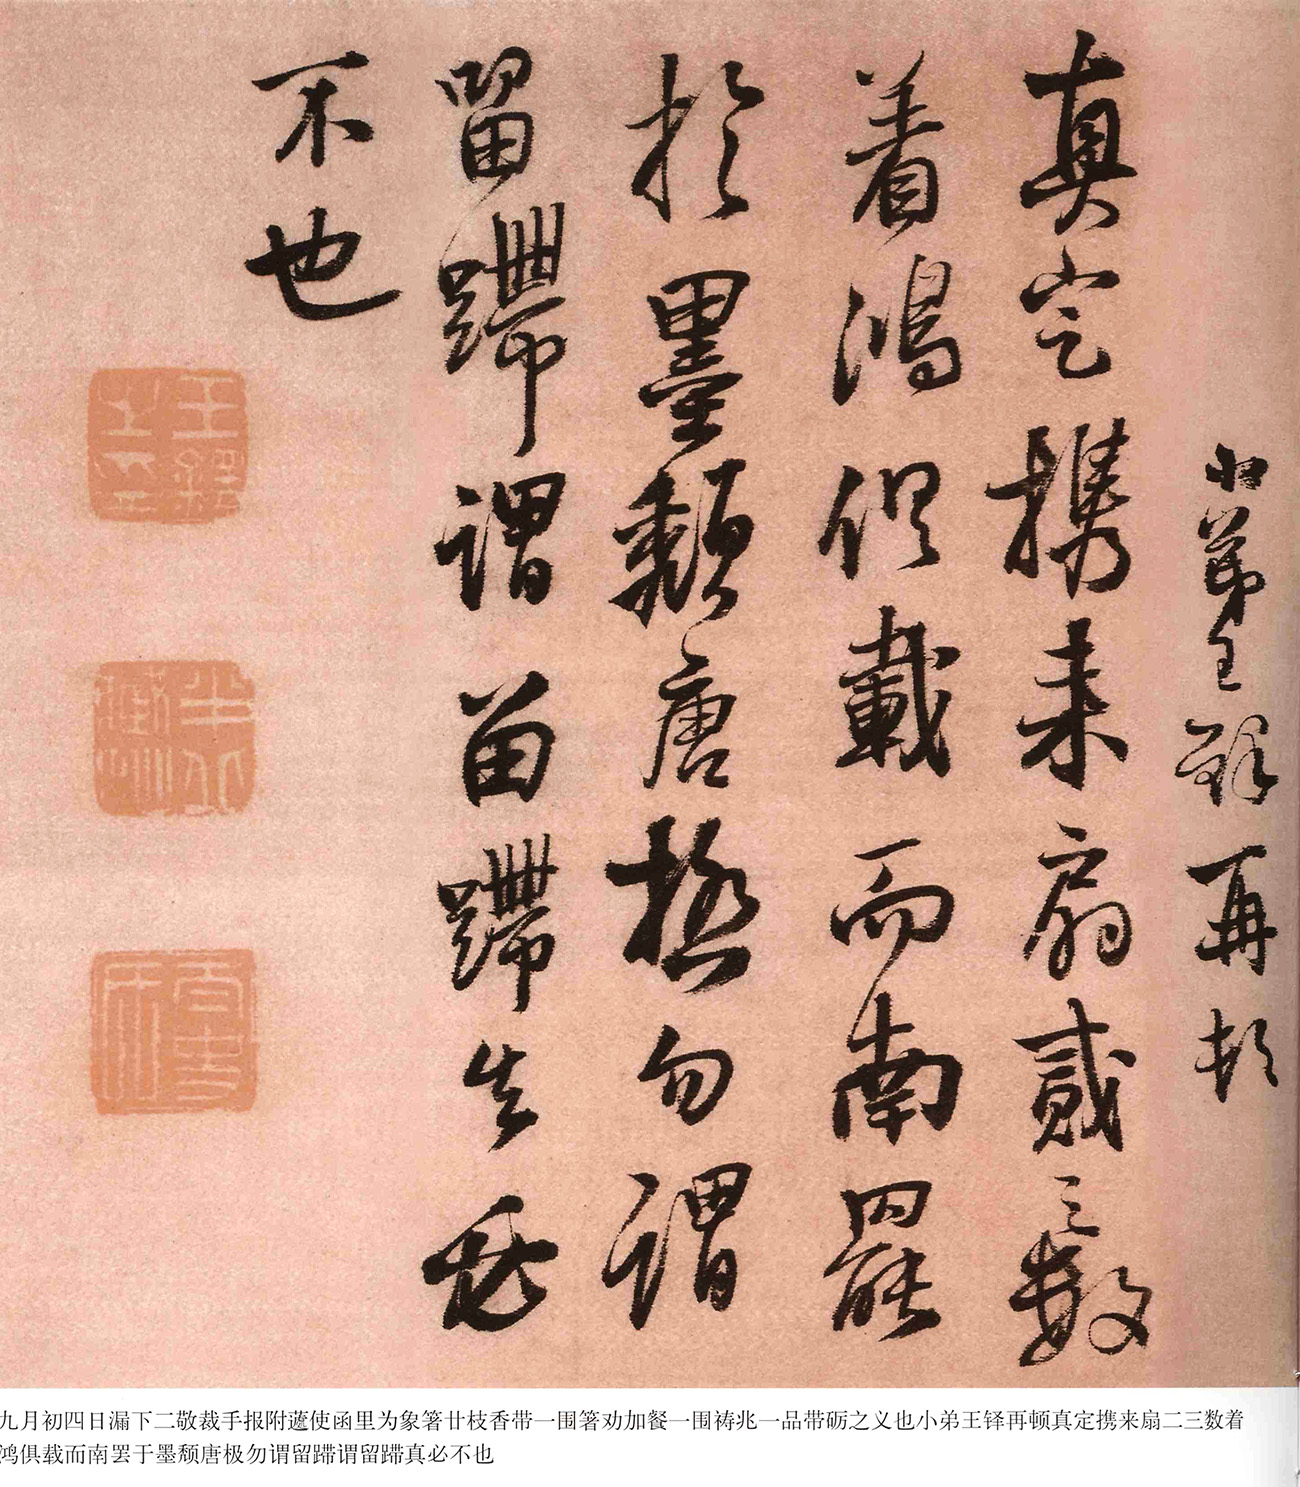 小弟王鐸再頓
真定攜来扇貳三數
着鴻俱載而南罷
於墨頽唐極勿謂
留蹛謂留蹛
不也
王鐸之印
九月初四日漏下二敬裁手报附蘧使函里为象箸廿枝香带一围箸劝加餐一围祷兆一品带砺之义也小弟王铎再顿真定携来扇二三数着
鸿俱载而南罢于墨颓唐极勿谓留蹛谓留蹛真必不也